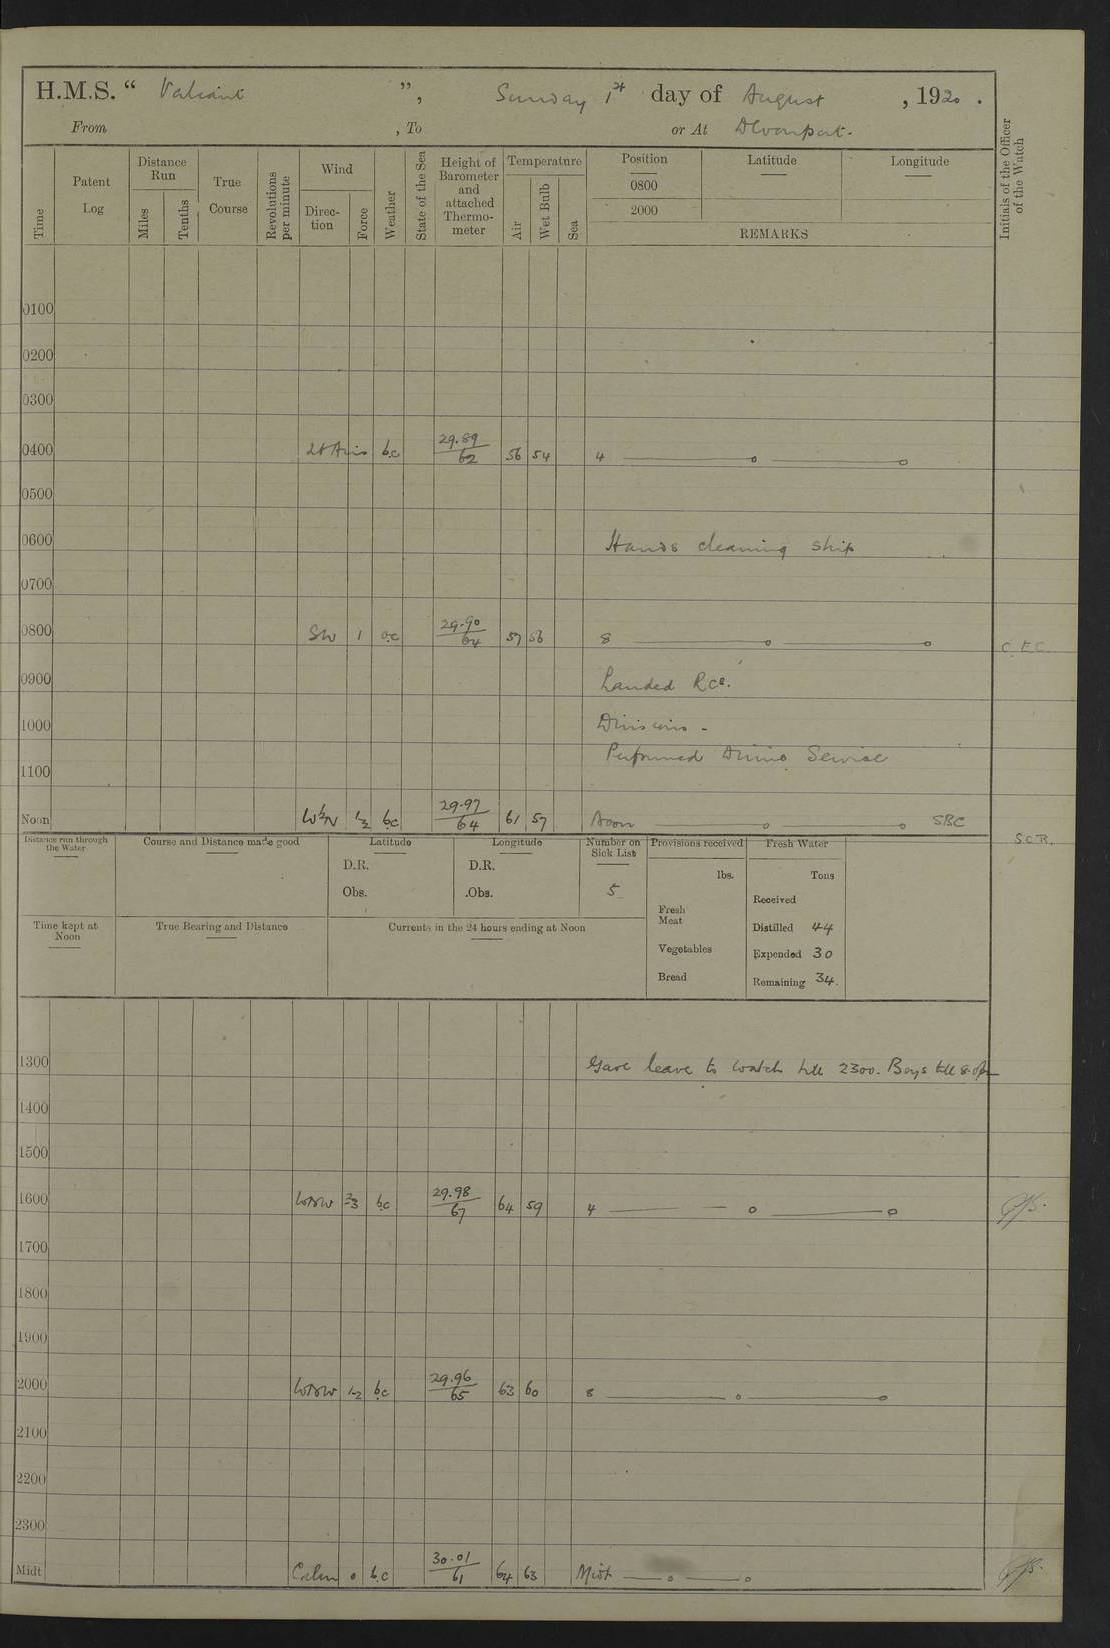 H.M.S. “ Valiant ”, Sunday 1st day of August , 1920 .
From , To or At Devonport.
Time
Patent Log
Distance Run
Miles
Tenths
True Course
Revolutions per minute
Wind
Direc- tion
Force
Weather
State of the Sea
Height of Barometer and attached Thermo- meter
Temperature
Air
Wet Bulb
Sea
Position Latitude Longitude
0800
2000
REMARKS
Initials of the Officer of the Watch
0100
0200
0300
0400 Lt Airs bc 29.89/62 56 54 4
0500
0600 Hands cleaning ship
0700
0800 SW 1 oc 29.90/64 57 56 8 C.F.C.
0900 Landed RCs.
1000 Divisions -
Performed Divine Service
1100
Noon WbN 1-2 bc 29.97/64 61 57 Noon SBC
S.C.R.
Distance run through the Water
Course and Distance made good
Latitude
D.R.
Obs.
Longitude
D.R.
Obs.
Number on Sick List
5
Provisions received
lbs.
Fresh Meat
Vegetables
Bread
Fresh Water
Tons
Received
Distilled 44
Expended 30
Remaining 34.
Time kept at Noon
True Bearing and Distance
Currents in the 24 hours ending at Noon
1300 Gave leave to watch till 2300. Boys till 8.0pm
1400
1500
1600 WNW 2-3 bc 29.98/67 64 59 4
1700
1800
1900
2000 WNW 1-2 bc 29.96/65 63 60 8
2100
2200
2300
Midt Calm 0 bc 30.01/61 64 63 Midt